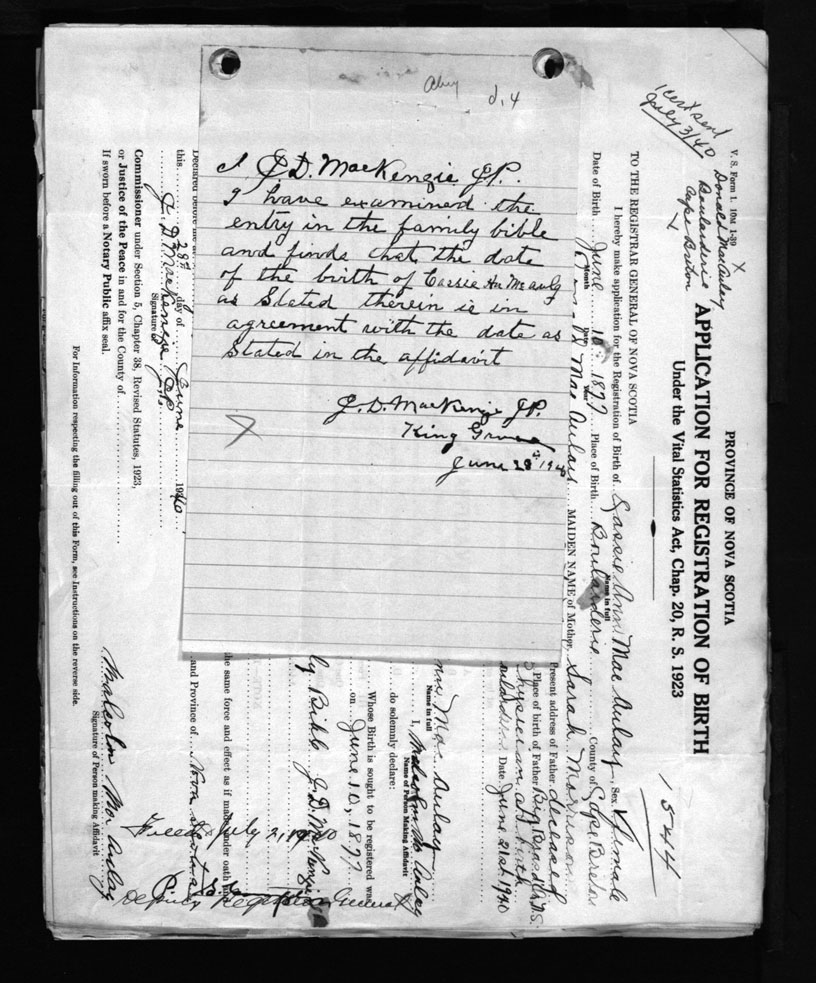 I J. D. MacKenzie J.P.
I have examined the
entry in the family bible
and finds that the date
of the birth of Cassie Ann McAuly
as Stated therein is in
agreement with the date as
Stated in the affidavit
J. D. MacKenzie J.P.
King Grove
June 28th 1940
1 cert sent
July 3/40
V. S. Form 1. 10M 1-39
Donald MacAulay
Boularderie
Cape Breton
X
PROVINCE OF NOVA SCOTIA
APPLICATION FOR REGISTRATION OF BIRTH
Under the Vital Statistics Act, Chap. 20, R. S. 1923
1544
TO THE REGISTRAR GENERAL OF NOVA SCOTIA
I hereby make application for the Registration of Birth of Cassie Ann MacAulay, Sex Female
Name in full
Date of Birth June 10 1877 Place of Birth Boularderie County of Cape Breton
Month Day Year
MacAulay MAIDEN NAME of Mother Sarah Morrison
Present address of Father deceased
Place of birth of Father Big Bras d'Or N.S.
Physician at birth
Date June 21st 1940
MacAulay
Name in full
I, Malcolm McAulay
Name of Person Making Affidavit
do solemnly declare:
Whose Birth is sought to be registered was
on June 10, 1877
ly Bible J. D. MacKenzie
the same force and effect as if made under oath
and Province of Nova Scotia
Declared before me
this 28th day of June 1940
J. D. MacKenzie
Signature
Commissioner under Section 5, Chapter 38, Revised Statutes, 1923,
or Justice of the Peace in and for the County of
If sworn before a Notary Public affix seal.
Malcolm McAulay
Signature of Person making Affidavit
Filed July 2, 1940
Deputy Registrar General
For Information respecting the filling out of this Form, see Instructions on the reverse side.